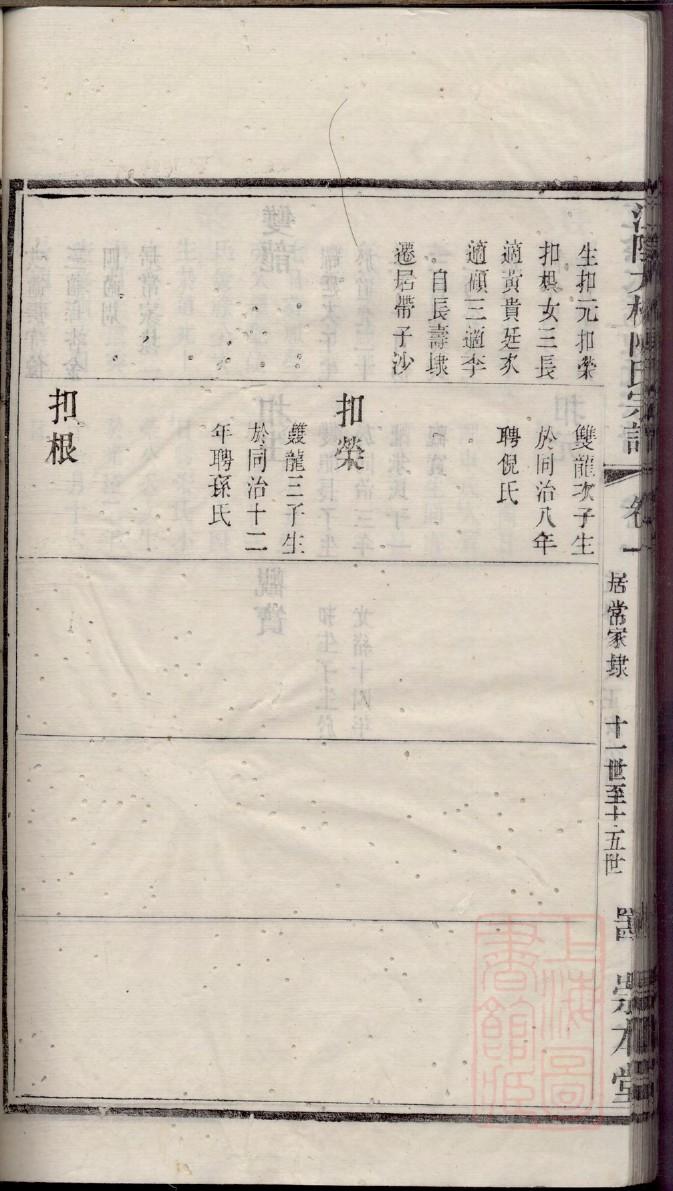 生扣元扣榮
扣根女三長
適黃貴廷次
適顧三適李
自長壽埭
遷居帶子沙
雙龍次子生
於同治八年
聘倪氏
扣榮
雙龍三子生
於同治十二
年聘孫氏
扣根
陳氏宗譜
卷一
居常家埭
十一世至十五世
崇本堂
上海圖書館藏